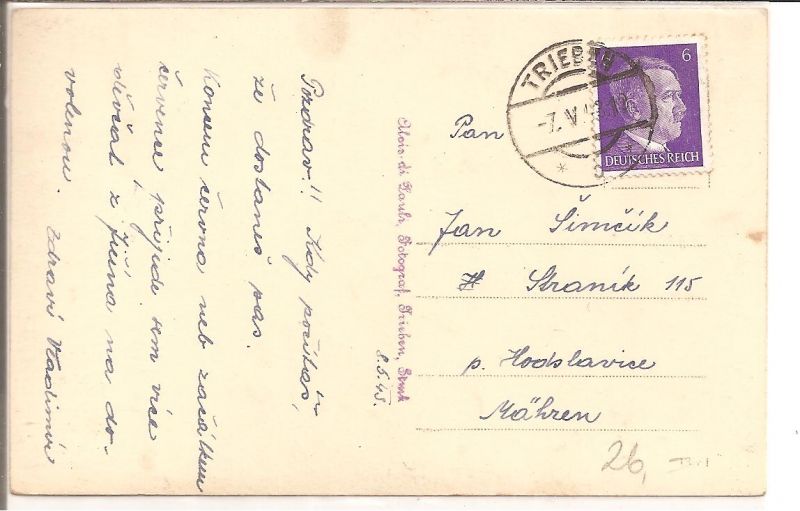 Pozdrav!! Kdy počítáš,
že dostaneš pas.
Koncem června neb začátkem
července přijede sem více
děvčat z Jičína na do-
volenou. Zdraví Vladimír
8.5.43.
Alois di Paula, Fotograf, Trieben, Stmk
TRIEBEN
-7. V. 43.
6
DEUTSCHES REICH
Pan
Jan Šimčík
Straník 115
p. Hodslavice
Mähren
26,